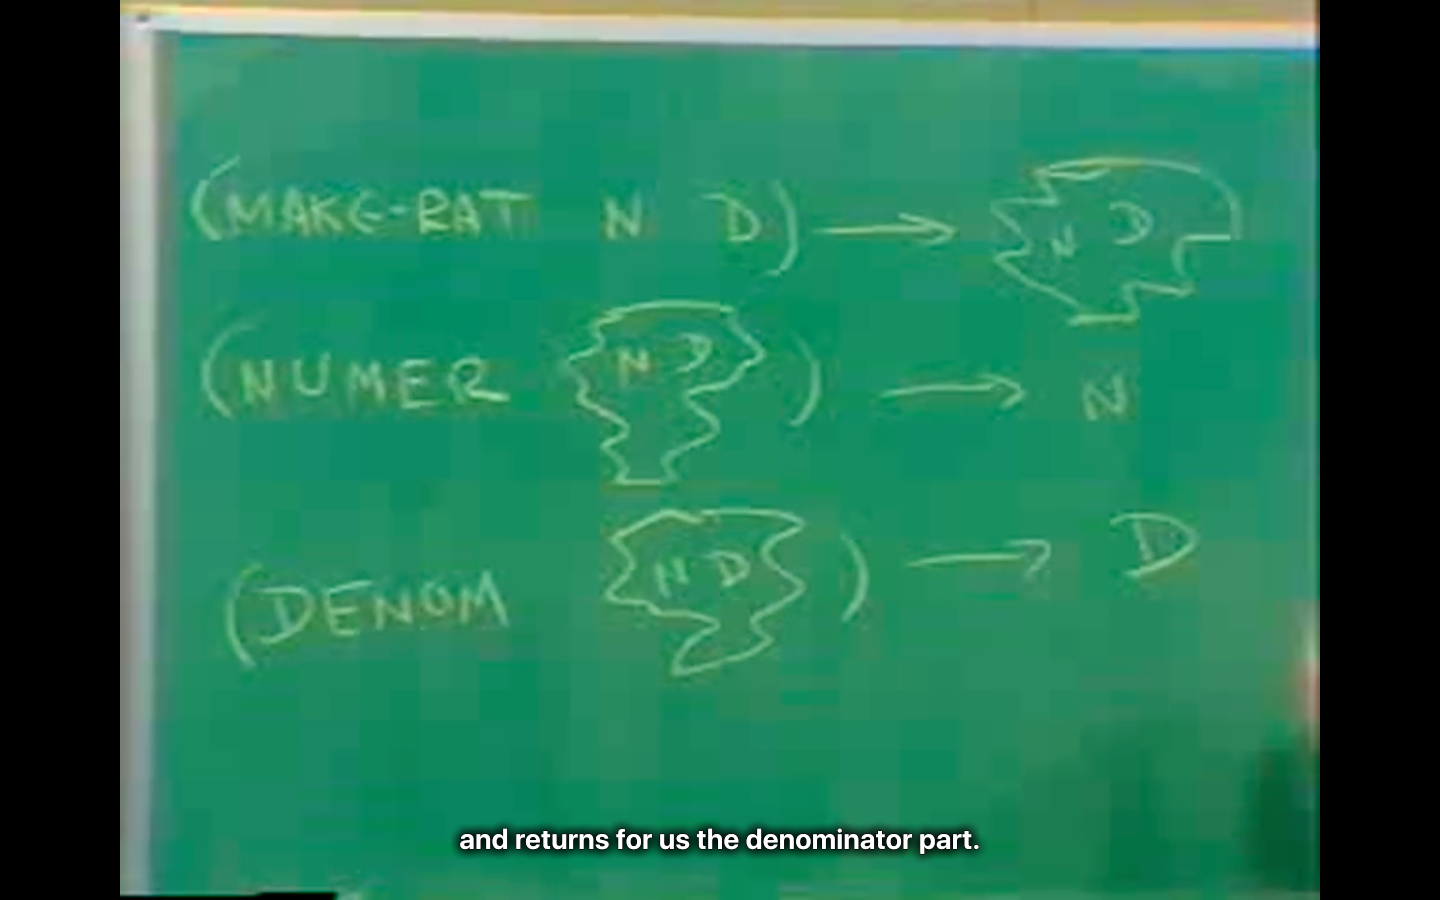 (MAKE-RAT N D) → N D
(NUMER N D) → N
(DENOM N D) → D
and returns for us the denominator part.